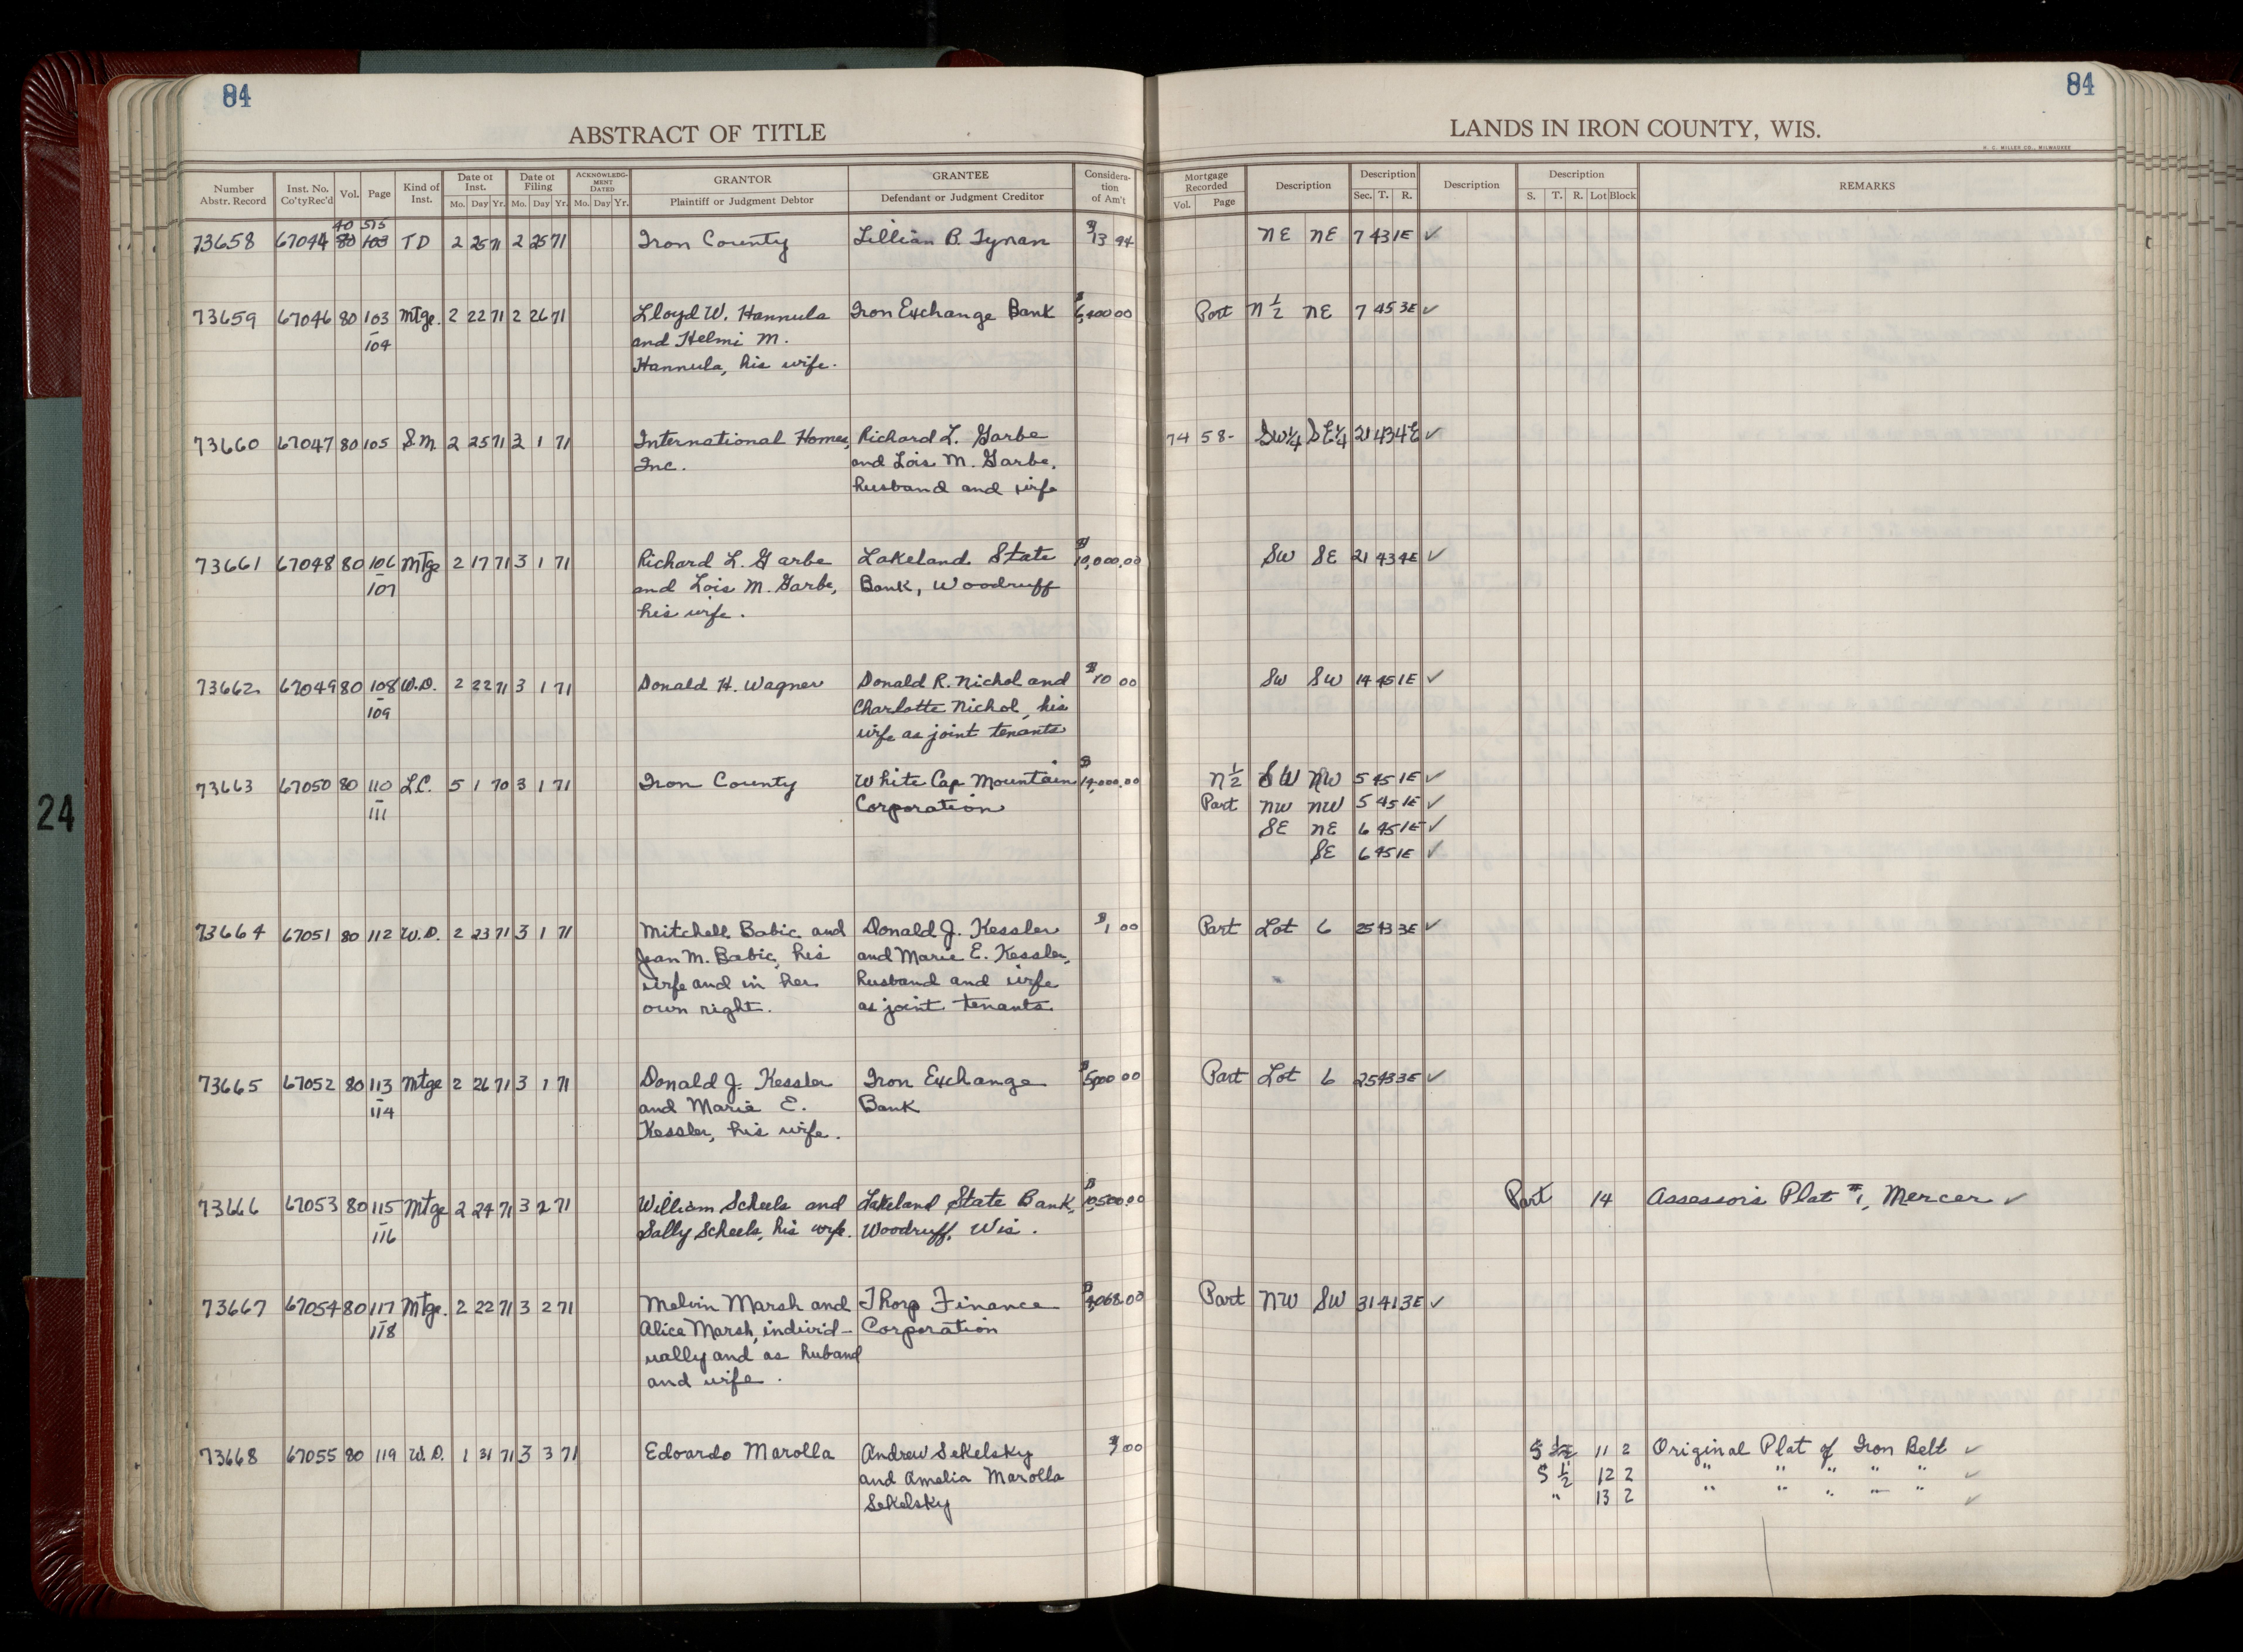 84 84
ABSTRACT OF TITLE LANDS IN IRON COUNTY, WIS.
H. C. MILLER CO., MILWAUKEE
Number Abstr. Record Inst. No. Co'ty Rec'd Vol. Page Kind of Inst. Date of Inst. Mo. Day Yr. Date of Filing Mo. Day Yr. ACKNOWLEDGMENT DATED Mo. Day Yr. GRANTOR Plaintiff or Judgment Debtor GRANTEE Defendant or Judgment Creditor Consideration of Am't Mortgage Recorded Vol. Page Description Description Sec. T. R. Description Description S. T. R. Lot Block REMARKS
40 515
73658 67044 80 103 TD 2 25 71 2 25 71 Iron County Lillian B. Tynan $13 94 NE NE 7 43 1E ✓
73659 67046 80 103 Mtge. 2 22 71 2 26 71 Lloyd W. Hannula Iron Exchange Bank Part N 1/2 NE 7 45 3E ✓
104 and Helmi M.
Hannula, his wife.
73660 67047 80 105 S.M. 2 25 71 3 1 71 International Homes, Richard L. Garbe 74 58- SW1/4 SE1/4 21 43 4E ✓
Inc. and Lois M. Garbe,
husband and wife
73661 67048 80 106 Mtge 2 17 71 3 1 71 Richard L. Garbe Lakeland State $10,000.00 SW SE 21 43 4E ✓
107 and Lois M. Garbe, Bank, Woodruff
his wife.
73662 67049 80 108 W.D. 2 22 71 3 1 71 Donald H. Wagner Donald R. Nichol and $10 00 SW SW 14 45 1E ✓
109 Charlotte Nichol, his
wife as joint tenants
73663 67050 80 110 L.C. 5 1 70 3 1 71 Iron County White Cap Mountain $14,000.00 N 1/2 SW NW 5 45 1E ✓
111 Corporation Part NW NW 5 45 1E ✓
SE NE 6 45 1E ✓
SE 6 45 1E ✓
73664 67051 80 112 W.D. 2 23 71 3 1 71 Mitchell Babic and Donald J. Kessler $1 00 Part Lot 6 25 43 3E ✓
Jean M. Babic, his and Marie E. Kessler,
wife and in her husband and wife
own right. as joint tenants
73665 67052 80 113 Mtge 2 26 71 3 1 71 Donald J. Kessler Iron Exchange $5,000 00 Part Lot 6 25 43 3E ✓
114 and Marie E. Bank
Kessler, his wife.
73666 67053 80 115 Mtge 2 24 71 3 2 71 William Scheels and Lakeland State Bank, $10,500.00 Part 14 Assessor's Plat #1, Mercer ✓
116 Sally Scheels, his wife. Woodruff, Wis.
73667 67054 80 117 Mtge. 2 22 71 3 2 71 Melvin Marsh and Thorp Finance Part NW SW 31 41 3E ✓
118 Alice Marsh, individ- Corporation
ually and as huband
and wife.
73668 67055 80 119 W.D. 1 31 71 3 3 71 Edoardo Marolla Andrew Sekelsky S 1/2 11 2 Original Plat of Iron Belt ✓
and Amelia Marolla S 1/2 12 2 " " " " " ✓
Sekelsky " 13 2 " " " " " ✓
24